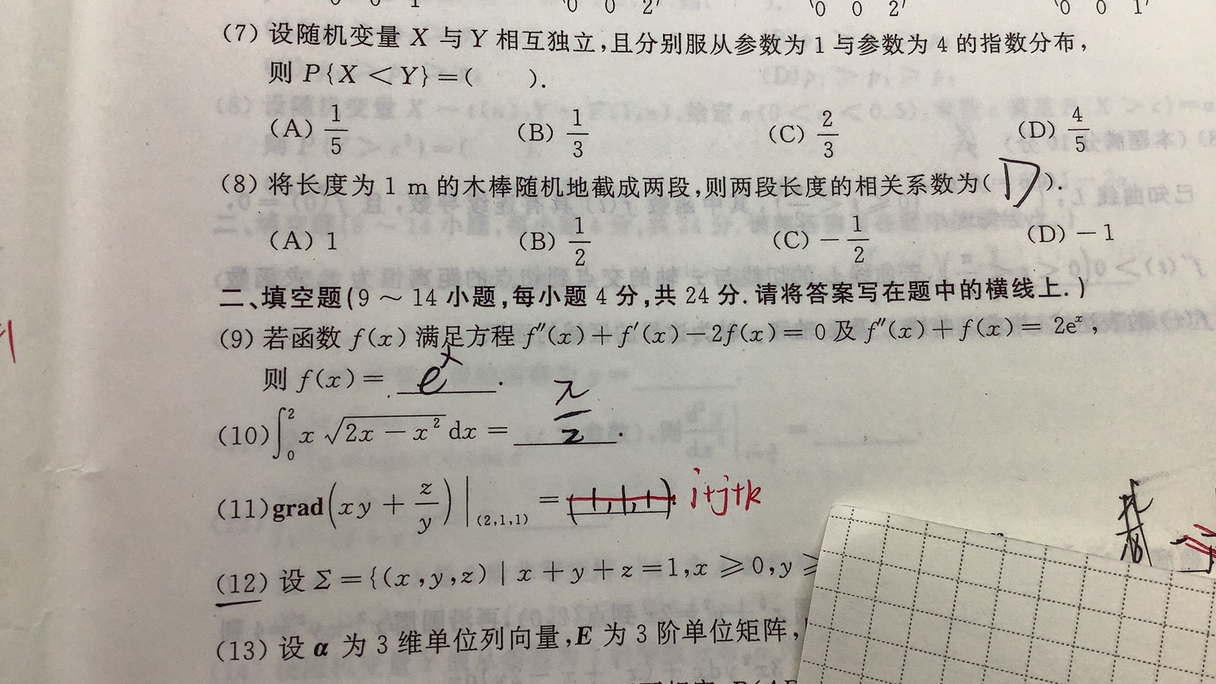 0 0 1 0 0 2 0 0 2 0 0 1
(7) 设随机变量 X 与 Y 相互独立,且分别服从参数为 1 与参数为 4 的指数分布,
则 P{X < Y} = ( ).
(A) 1/5 (B) 1/3 (C) 2/3 (D) 4/5
(8) 将长度为 1 m 的木棒随机地截成两段,则两段长度的相关系数为( D ).
(A) 1 (B) 1/2 (C) −1/2 (D) −1
二、填空题(9 ～ 14 小题,每小题 4 分,共 24 分. 请将答案写在题中的横线上. )
(9) 若函数 f(x) 满足方程 f″(x) + f′(x) − 2f(x) = 0 及 f″(x) + f(x) = 2eˣ,
则 f(x) = eˣ .
(10) ∫₀² x √(2x − x²) dx = π/2 .
(11) grad(xy + z/y)|(2,1,1) = (1,1,1). i+j+k
(12) 设 Σ = {(x,y,z) | x + y + z = 1, x ⩾ 0, y ⩾
(13) 设 α 为 3 维单位列向量, E 为 3 阶单位矩阵,